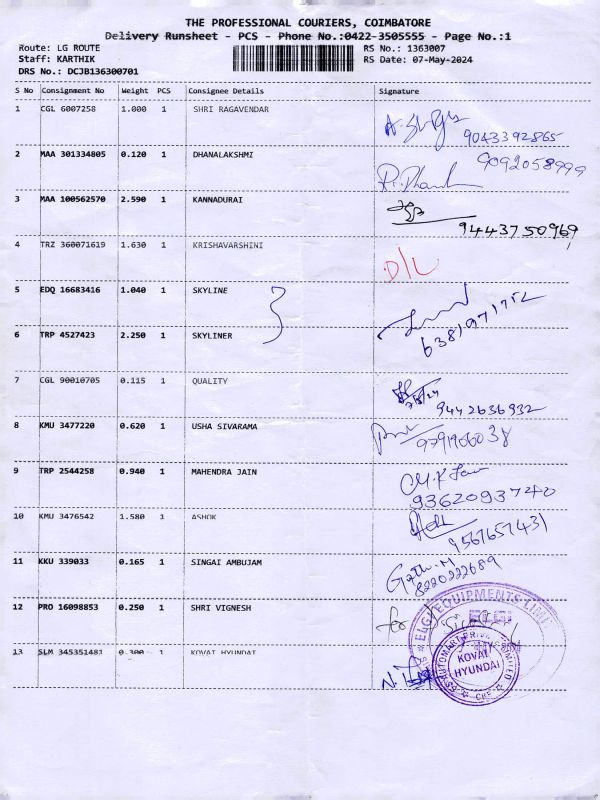 THE PROFESSIONAL COURIERS, COIMBATORE
Delivery Runsheet - PCS - Phone No.:0422-3505555 - Page No.:1
Route: LG ROUTE RS No.: 1363007
Staff: KARTHIK RS Date: 07-May-2024
DRS No.: DCJB136300701
S No Consignment No Weight PCS Consignee Details Signature
1 CGL 6007258 1.000 1 SHRI RAGAVENDAR
9043392865
2 MAA 301334805 0.120 1 DHANALAKSHMI 9092058999
3 MAA 100562570 2.590 1 KANNADURAI
9443750969
4 TRZ 360071619 1.630 1 KRISHAVARSHINI
D/L
5 EDQ 16683416 1.040 1 SKYLINE
6381971752
6 TRP 4527423 2.250 1 SKYLINER
7 CGL 90010705 0.115 1 QUALITY
9442636932
8 KMU 3477220 0.620 1 USHA SIVARAMA
9791906038
9 TRP 2544258 0.940 1 MAHENDRA JAIN
9362093740
10 KMU 3476542 1.580 1 ASHOK
9567657431
11 KKU 339033 0.165 1 SINGAI AMBUJAM
8220222689
12 PRO 16098853 0.250 1 SHRI VIGNESH
for
ELGI EQUIPMENTS LIMITED
ELGI
13 SLM 345351481 0.300 1 KOVAI HYUNDAI
KOVAI
HYUNDAI